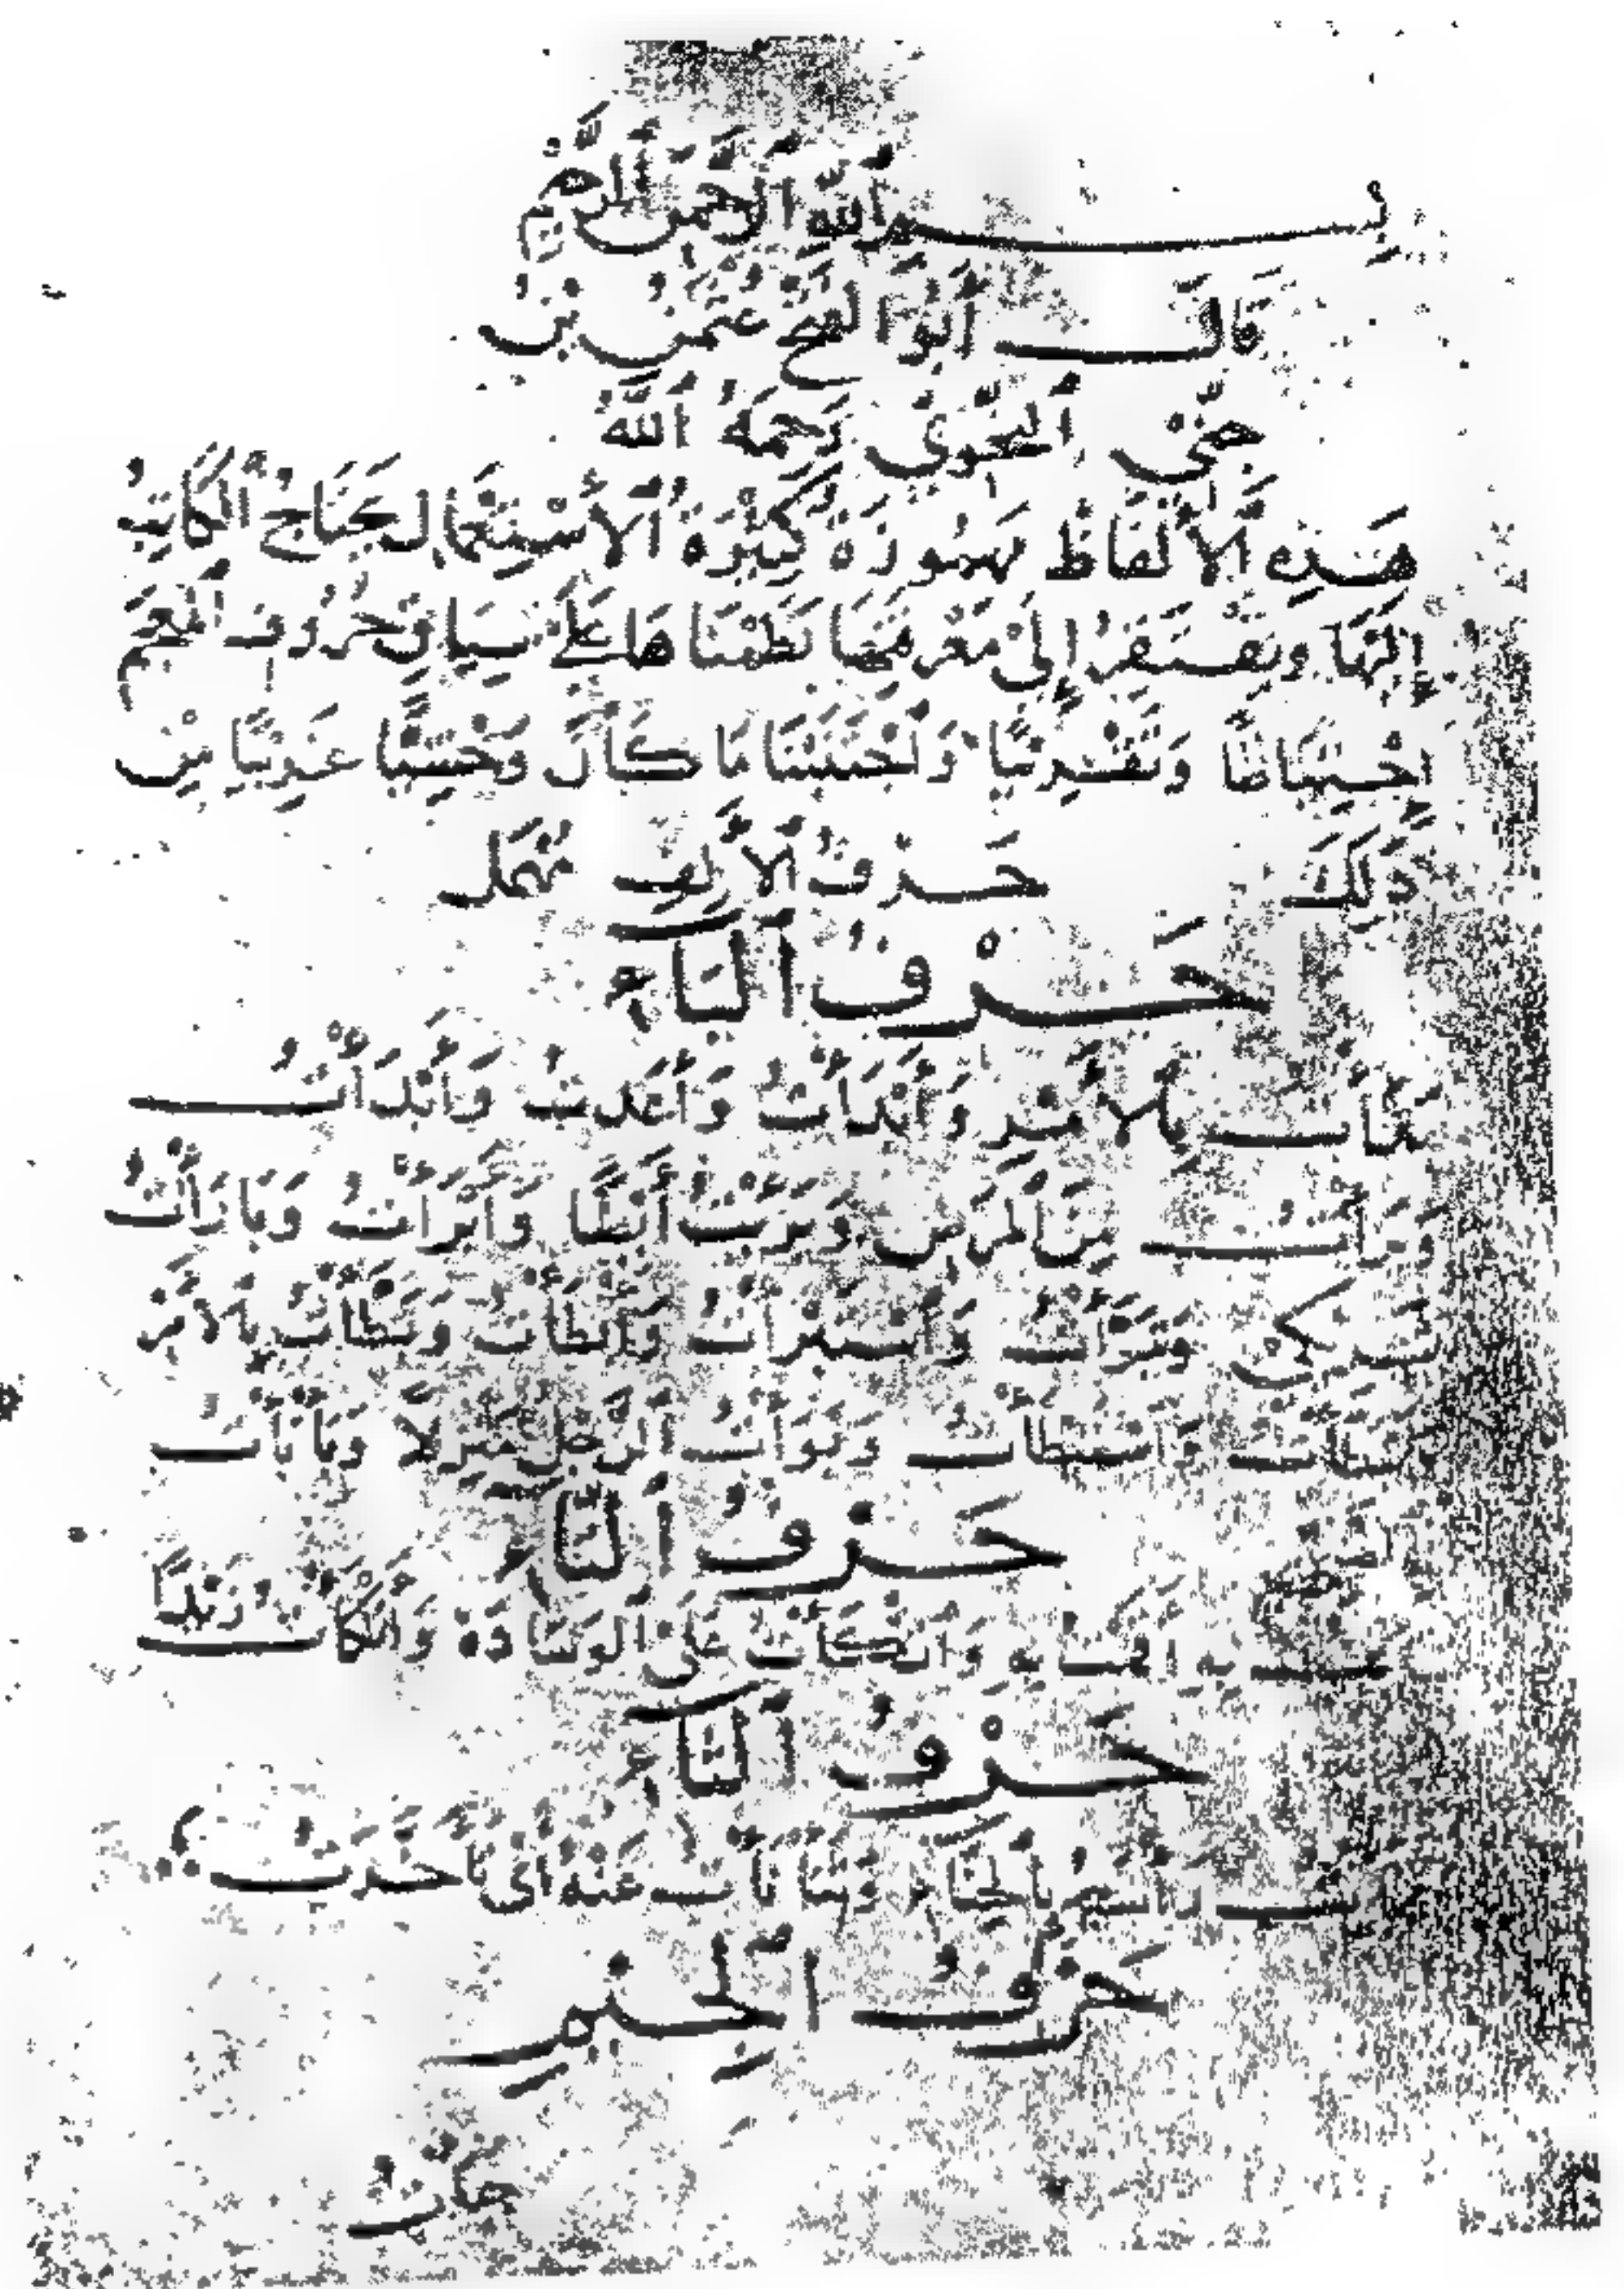 بِسْمِ اللهِ الرَّحْمٰنِ الرَّحِيمِ
قَالَ أَبُو الفَتْحِ عُثْمٰنُ بْنُ
جِنِّي النَّحْوِيُّ رَحِمَهُ اللهُ
هَذِهِ الْأَلْفَاظُ مَهْمُوزَةٌ كَثِيرَةُ الْاسْتِعْمَالِ يَحْتَاجُ الْكَاتِبُ
إِلَيْهَا وَيَفْتَقِرُ إِلَى مَعْرِفَتِهَا نَظَمْنَاهَا عَلَى سِيَاقِ حُرُوفِ الْمُعْجَمِ
احْتِيَاطًا وَتَقْرِيبًا وَاجْتَنَبْنَا مَا كَانَ وَحْشِيًّا غَرِيبًا مِنْ
ذَلِكَ حَرْفُ الْأَلِفِ مُهْمَلٌ
حَرْفُ الْبَاءِ
بَدَأْتُ بِالْأَمْرِ وَأَبْدَأْتُ وَابْتَدَأْتُ
وَبَرَأْتُ مِنَ الْمَرَضِ وَبَرِئْتُ أَيْضًا وَأَبْرَأْتُ وَبَارَأْتُ
شَرِيكِي وَتَبَرَّأْتُ وَاسْتَبْرَأْتُ وَأَبْطَأْتُ وَبَطَّأْتُ بِالْأَمْرِ
وَاسْتَبْطَأْتُ وَبَوَّأْتُ الرَّجُلَ مَنْزِلًا وَبَأْبَأْتُ
حَرْفُ التَّاءِ
بِهِ وَاتَّكَأْتُ عَلَى الْوِسَادَةِ وَأَتْكَأْتُ زَيْدًا
حَرْفُ الثَّاءِ
بِالْحِنَّاءِ وَثَأْثَأْتُ عَنْهُ أَيْ تَأَخَّرْتُ
حَرْفُ الْجِيمِ